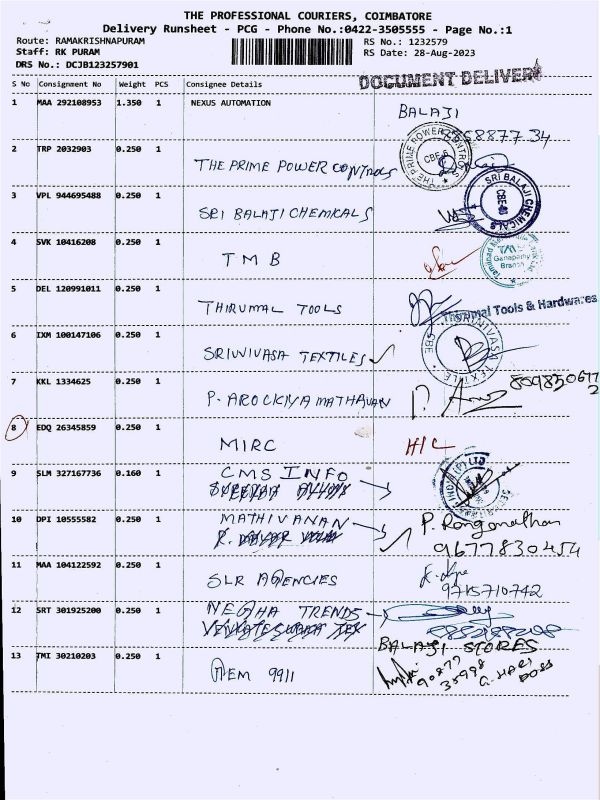 THE PROFESSIONAL COURIERS, COIMBATORE
Delivery Runsheet - PCG - Phone No.:0422-3505555 - Page No.:1
Route: RAMAKRISHNAPURAM
RS No.: 1232579
Staff: RK PURAM
RS Date: 28-Aug-2023
DRS No.: DCJB123257901
DOCUMENT DELIVERY
S No Consignment No Weight PCS Consignee Details
1 MAA 292108953 1.350 1 NEXUS AUTOMATION BALAJI
2 TRP 2032903 0.250 1 THE PRIME POWER CONTROLS
THE PRIME POWER CONTROLS CBE-6
3 VPL 944695488 0.250 1 SRI BALAJI CHEMICALS
SRI BALAJI CHEMICALS CBE-
4 SVK 10416208 0.250 1 TMB
Ganapathy
Branch
5 DEL 120991011 0.250 1 THIRUMAL TOOLS
Thirumal Tools & Hardwares
6 IXM 100147106 0.250 1 SRINIVASA TEXTILES
SRINIVASA TEXTILE CBE
7 KKL 1334625 0.250 1 P. AROCKIYA MATHAVAN
8 EDQ 26345859 0.250 1 MIRC H/C
9 SLM 327167736 0.160 1 CMS INFO
10 DPI 10555582 0.250 1 MATHIVANAN P. Ranganathan
9677830454
11 MAA 104122592 0.250 1 SLR AGENCIES
9715710742
12 SRT 301925200 0.250 1 NEGHA TRENDS
BALAJI STORES
13 TMI 30210203 0.250 1 GEM 9911
90877
35998
G. HARI
DOSS